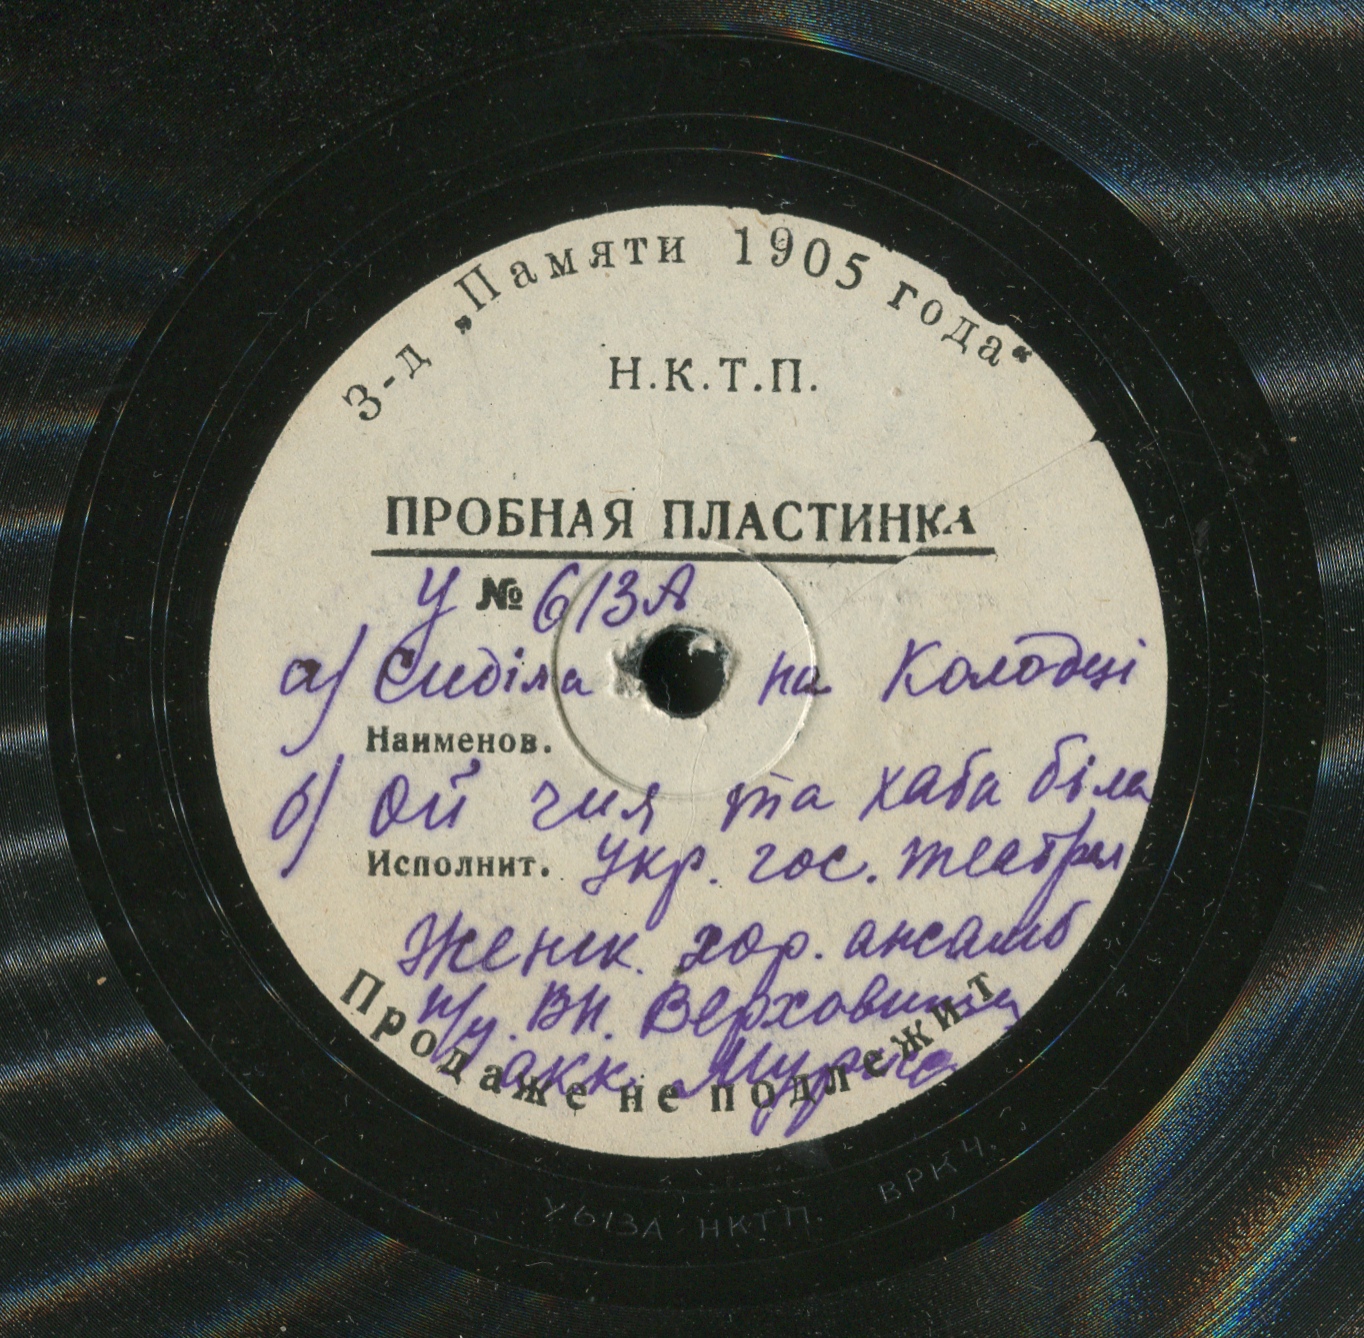 З-д „Памяти 1905 года“
Н.К.Т.П.
ПРОБНАЯ ПЛАСТИНКА
У № 613А
а) Сиділа на Колодці
Наименов.
б) Ой чия та хата біла
Исполнит. Укр. гос. театрал
Женск. хор. ансамб
п/у. Вл. Верховинец
акк.
Продаже не подлежит
У613А НКТП. ВРК4.